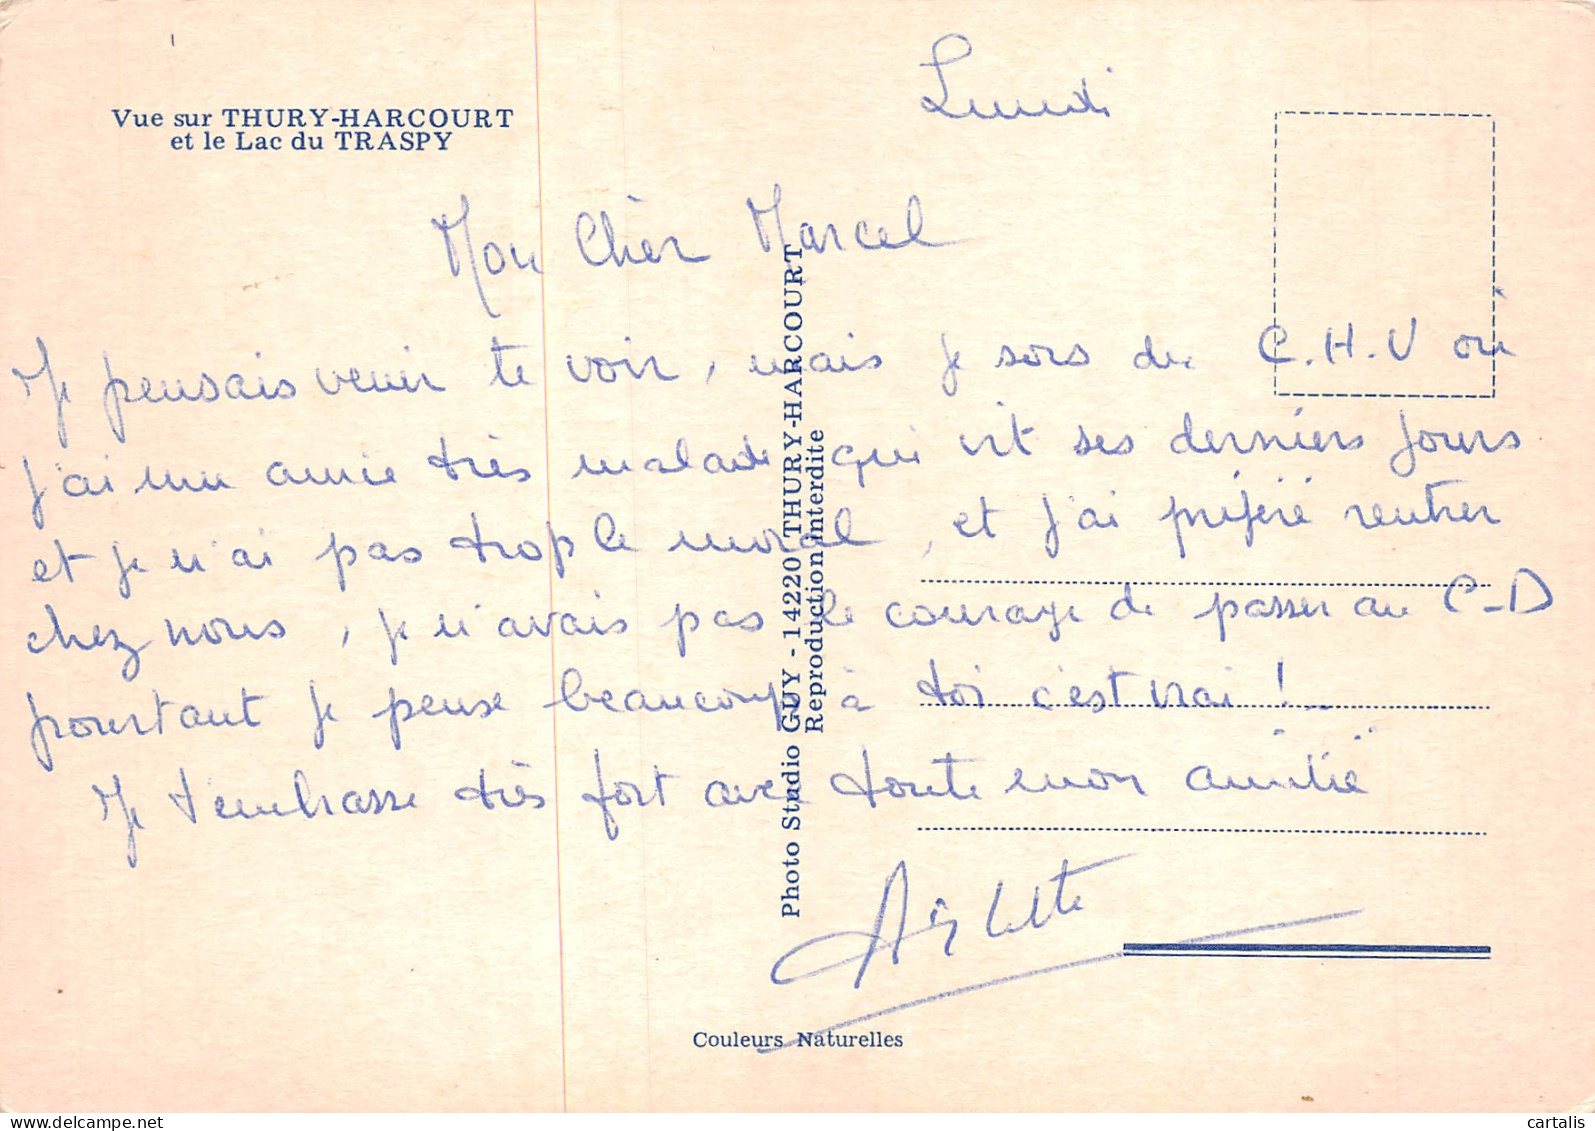 Vue sur THURY-HARCOURT
et le Lac du TRASPY
Lundi
Mon Chèr Marcel
Je pensais venir te voir, mais je sors du C.H.U où
j'ai une amie très malade qui vit ses derniers jours
et je n'ai pas trop le moral, et j'ai préféré rentrer
chez nous, je n'avais pas le courage de passer au C-D
pourtant je pense beaucoup à toi c'est vrai !
Je t'embrasse très fort avec toute mon amitié
Arlette
Photo Studio GUY - 14220 THURY-HARCOURT
Reproduction interdite
Couleurs Naturelles
www.delcampe.net
cartalis